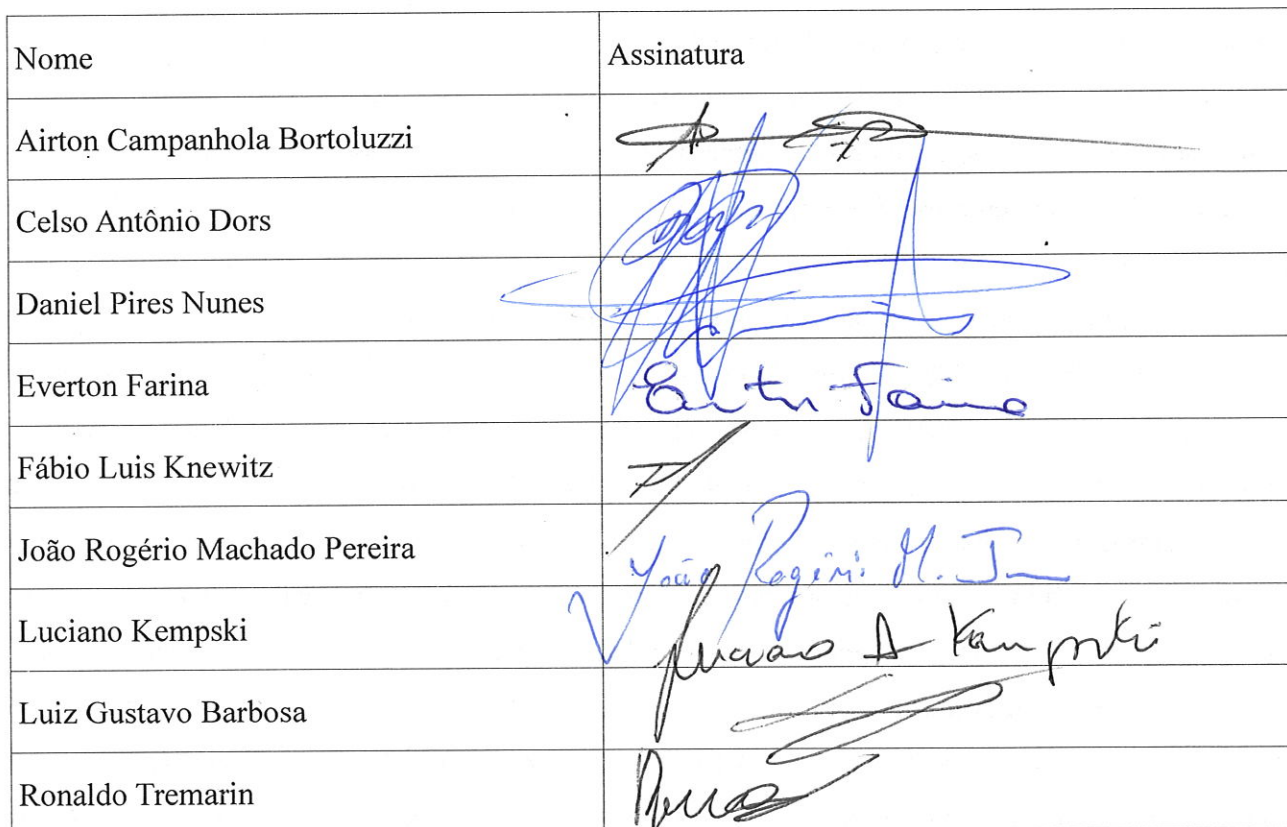 Nome Assinatura
Airton Campanhola Bortoluzzi
Celso Antônio Dors
Daniel Pires Nunes
Everton Farina Everton Farina
Fábio Luis Knewitz
João Rogério Machado Pereira João Rogério M.
Luciano Kempski Luciano A Kempski
Luiz Gustavo Barbosa
Ronaldo Tremarin